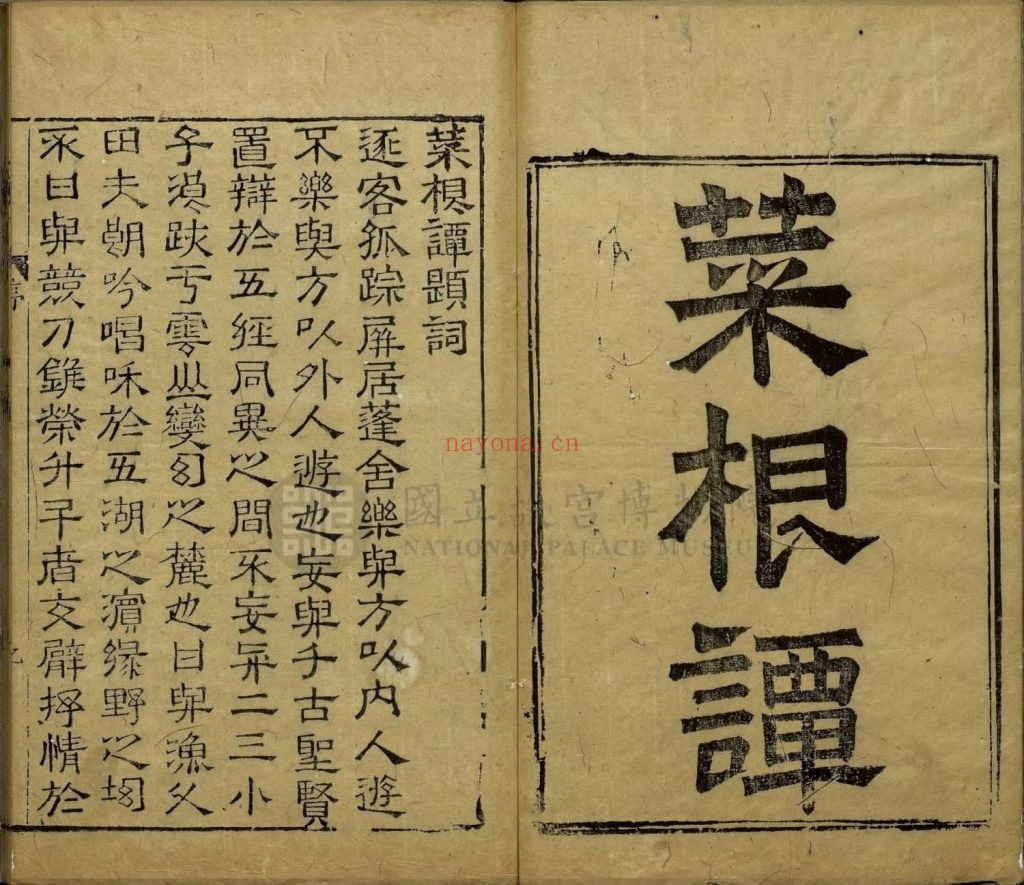 菜根譚
菜根譚題詞
逐客孤踪屏居蓬舍樂與方以内人遊
不樂與方以外人遊也妄與千古聖賢
置辯於五經同異之間不妄與二三小
子浪跡于雲山變幻之麓也日與漁父
田夫朗吟唱和於五湖之濱綠野之坳
不日與競刀錐榮升斗者交臂抒情於
nayona.cn
國立故宮博物院
NATIONAL PALACE MUSEUM